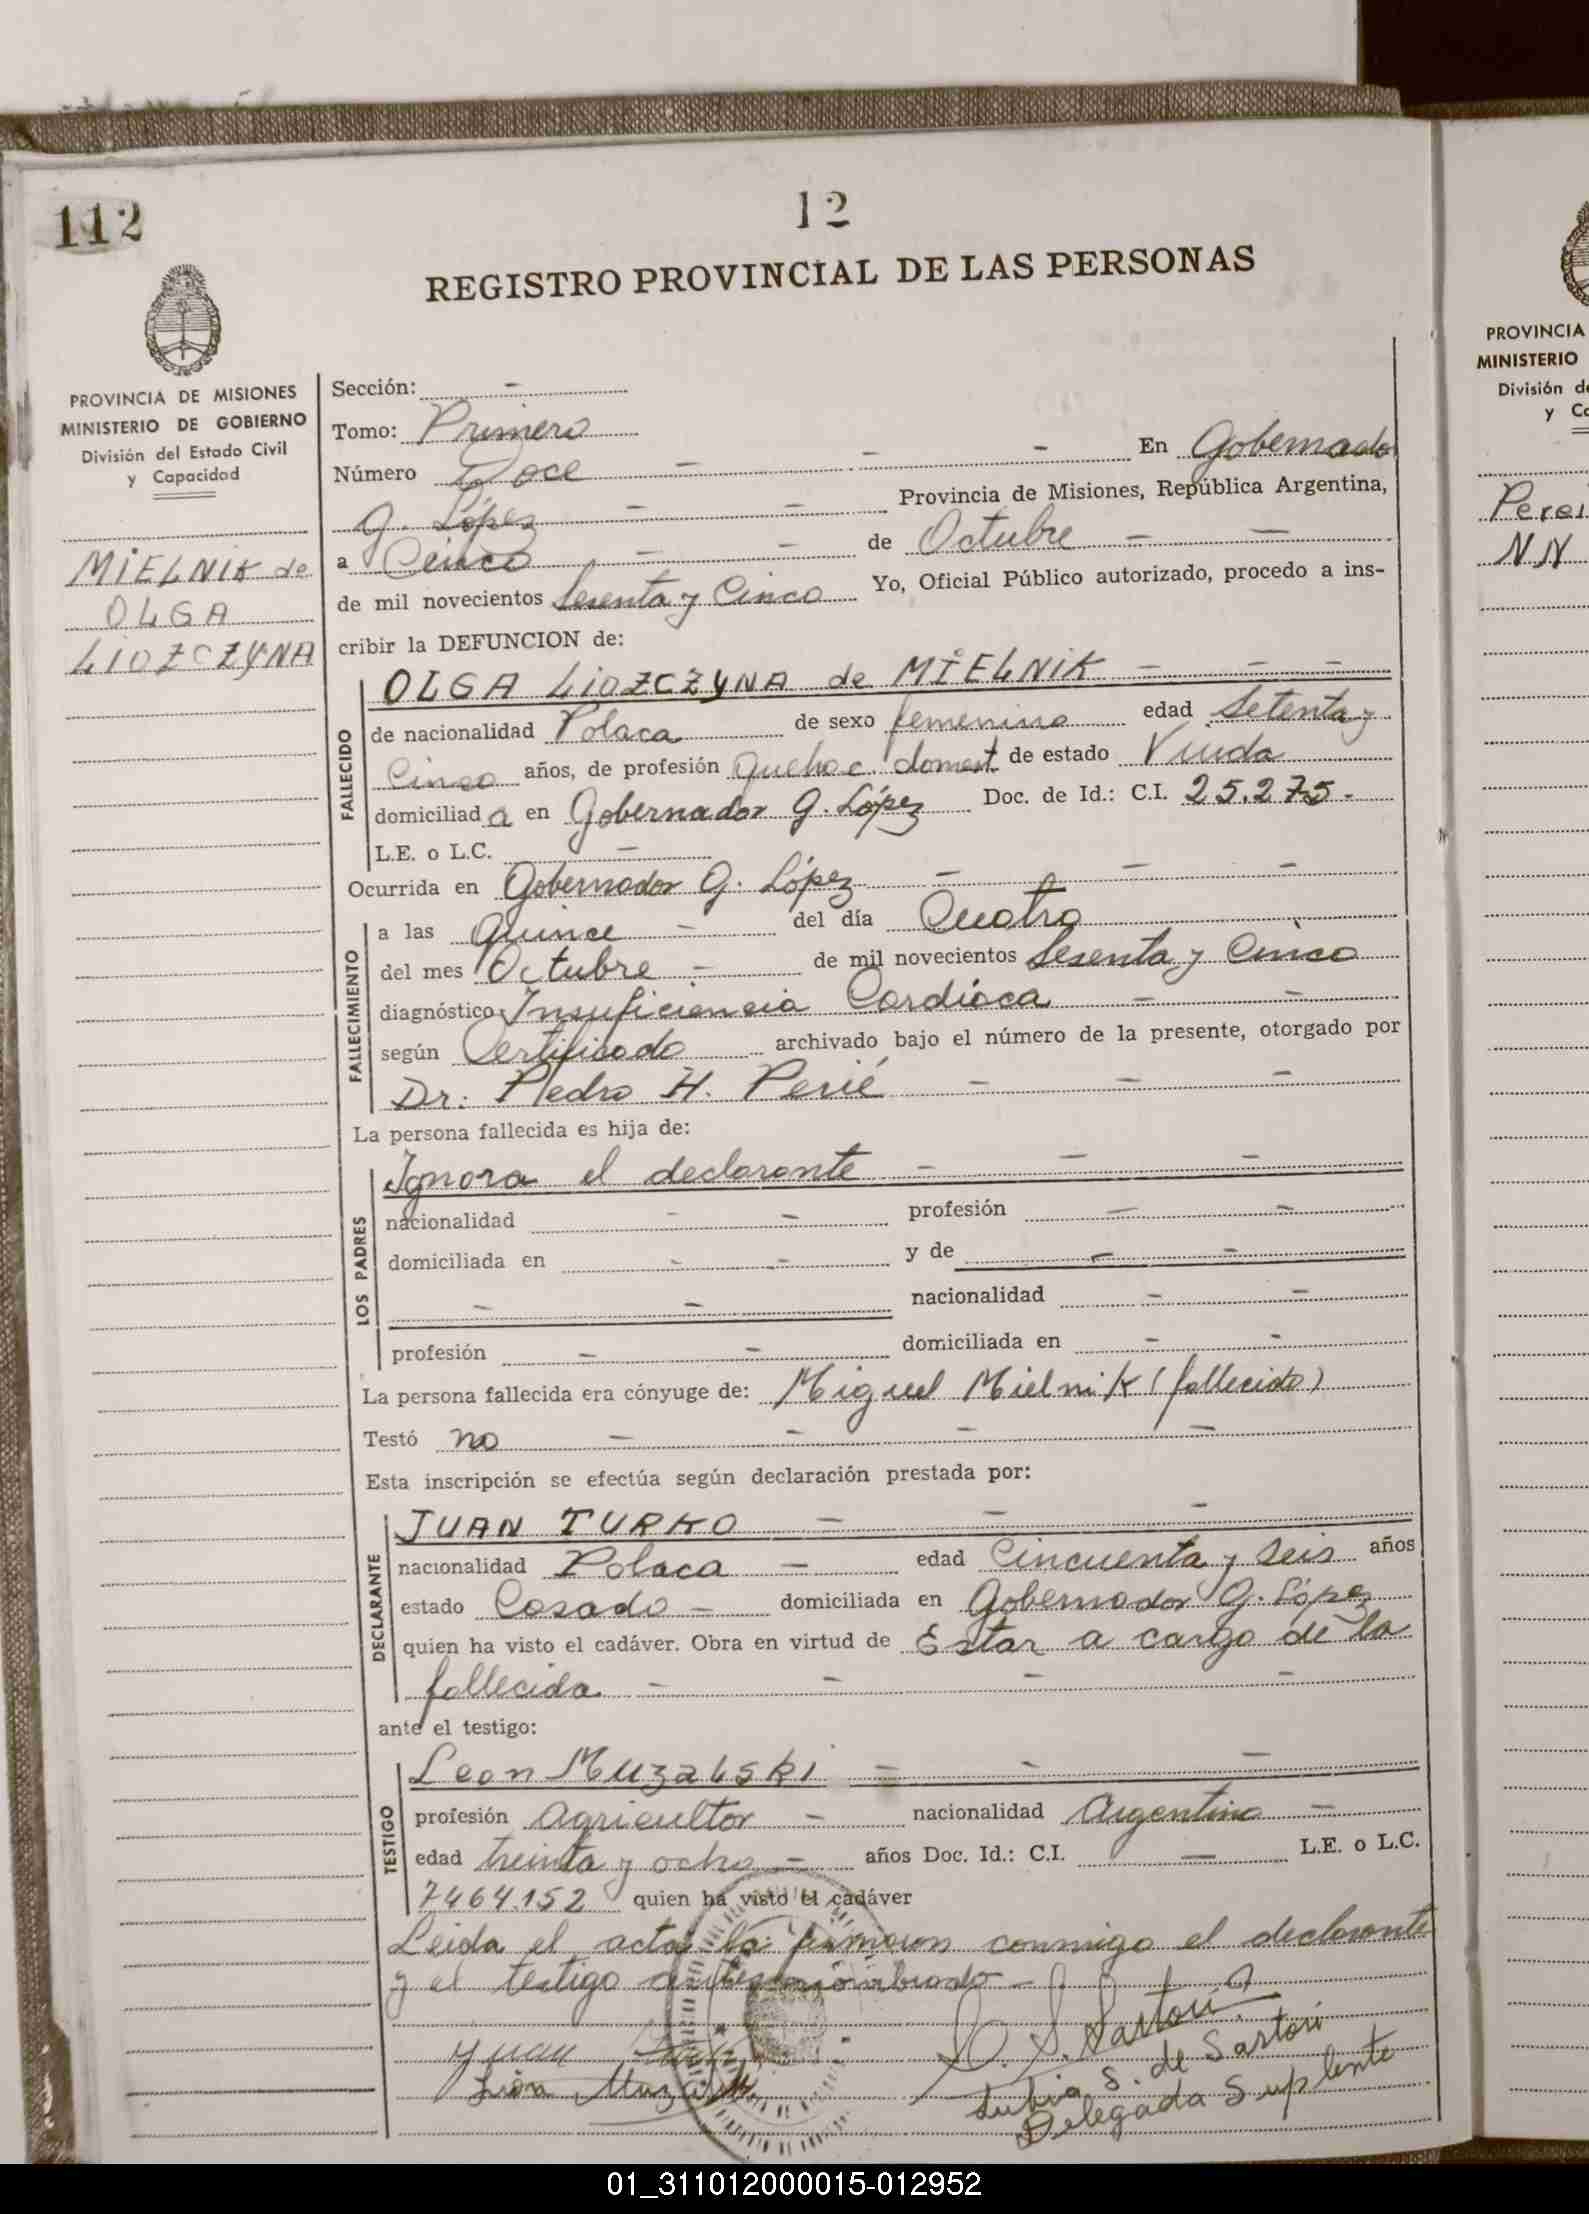 112
12
REGISTRO PROVINCIAL DE LAS PERSONAS
PROVINCIA DE MISIONES
MINISTERIO DE GOBIERNO
División del Estado Civil
y Capacidad
MIELNIK de
OLGA
LIOZCZYNA
Sección: -
Tomo: Primero
Número Doce - - - En Gobernador
G. López - - Provincia de Misiones, República Argentina,
a Cinco - - de Octubre - -
de mil novecientos Sesenta y Cinco Yo, Oficial Público autorizado, procedo a ins-
cribir la DEFUNCION de:
FALLECIDO
OLGA LIOZCZYNA de MIELNIK - - -
de nacionalidad Polaca de sexo femenino edad Setenta y
Cinco años, de profesión Quehac. domest. de estado Viuda
domiciliada en Gobernador G. López Doc. de Id.: C.I. 25.275.-
L.E. o L.C. -
Ocurrida en Gobernador G. López - - -
FALLECIMIENTO
a las quince - del día Cuatro
del mes Octubre - de mil novecientos Sesenta y Cinco
diagnóstico Insuficiencia Cardíaca - -
según Certificado archivado bajo el número de la presente, otorgado por
Dr. Pedro H. Perié - - -
La persona fallecida es hija de:
LOS PADRES
Ignora el declarante - - -
nacionalidad - - profesión - -
domiciliada en - - y de - -
- - nacionalidad - -
profesión - - domiciliada en - -
La persona fallecida era cónyuge de: Miguel Mielnik (fallecido)
Testó no - - - -
Esta inscripción se efectúa según declaración prestada por:
DECLARANTE
JUAN TURKO - - -
nacionalidad Polaca - edad Cincuenta y Seis años
estado Casado - domiciliada en Gobernador G. López
quien ha visto el cadáver. Obra en virtud de Estar a cargo de la
fallecida - - - -
ante el testigo:
TESTIGO
Leon Muzalski - - -
profesión agricultor - nacionalidad Argentino -
edad treinta y ocho - años Doc. Id.: C.I. - L.E. o L.C.
7464.152 quien ha visto el cadáver
Leida el acta la firman conmigo el declarante
y el testigo antes nombrado -
Juan
León
S. S. Sartori
Lubia S. de Sartori
Delegada Suplente
PROVINCIA
MINISTERIO
División de
y Ca
Perei
NN
01_311012000015-012952